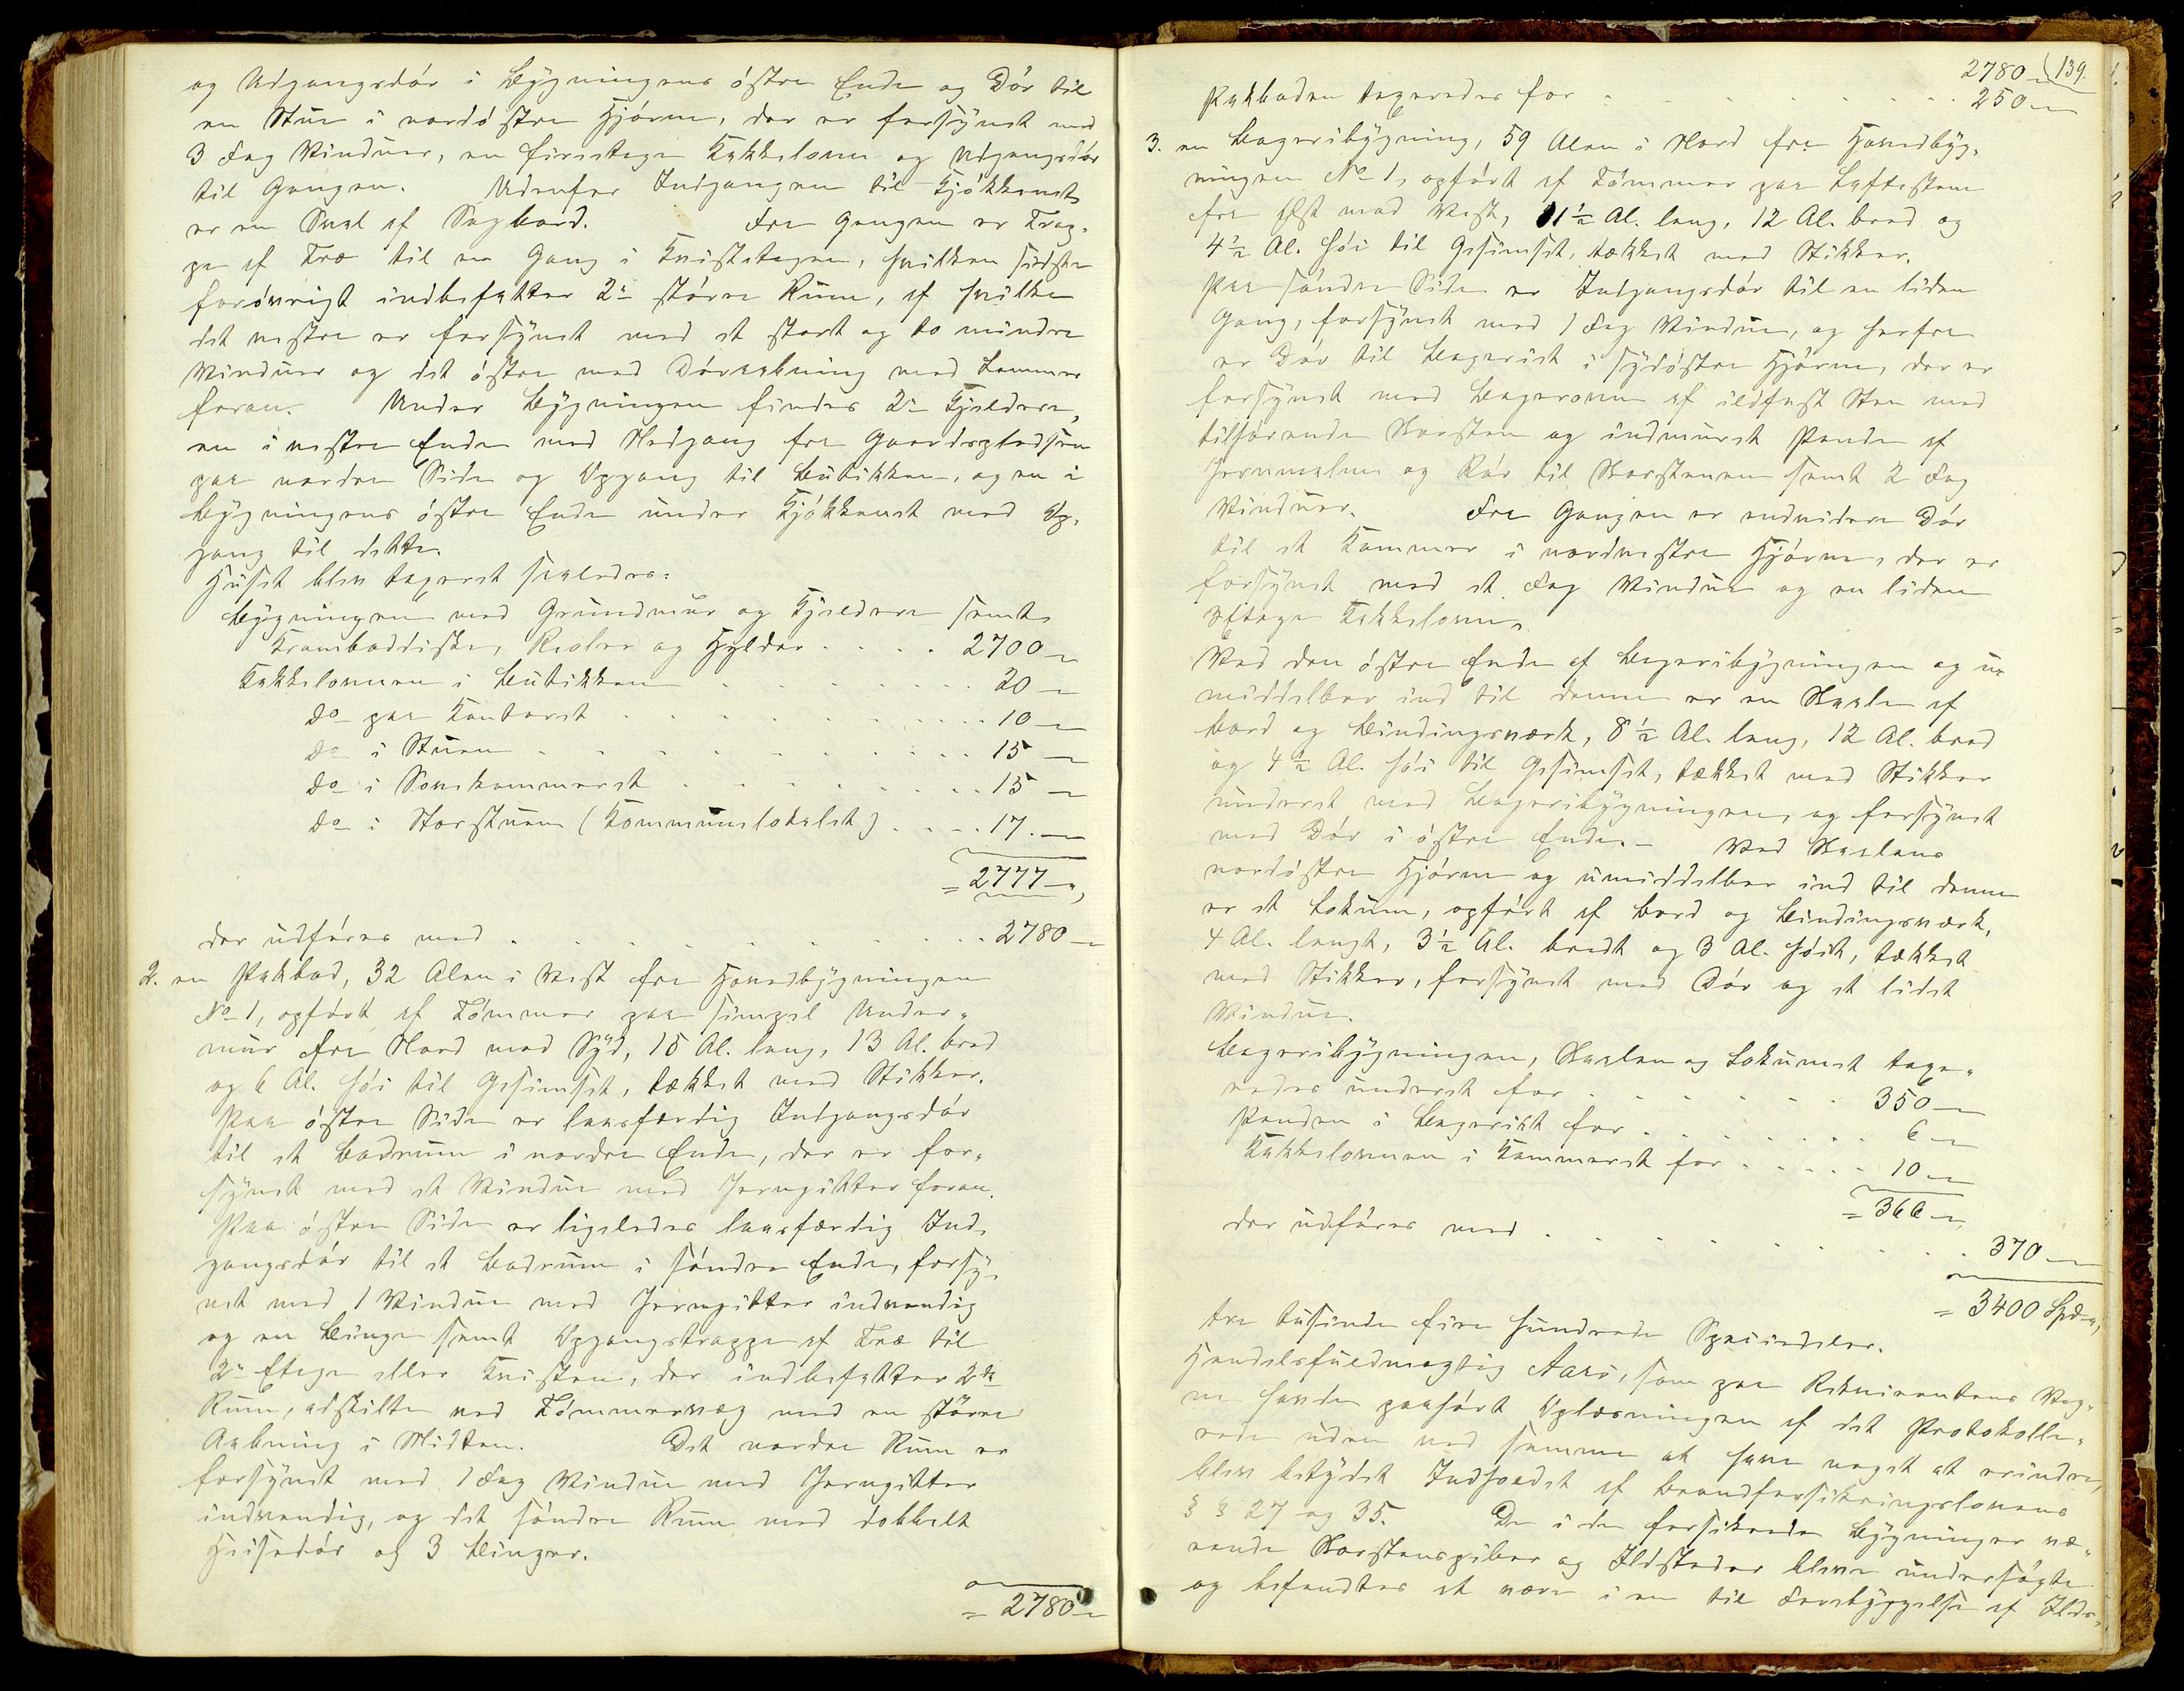 og Udgangsdør i Bygningens östre Ende og Dör til
en Stue i nordöstre Hjörne, der er forsynet med
3 Fag Vinduer, en fireetages Kakkelovn og Udgangsdör
til Gangen. Udenfor Indgangen til Kjökkenet
er en Sval af Sagbord. Fra Gangen er Trap-
pe af Træ til en Gang i Kvistetagen, hvilken sidste
forövrigt indbefatter 2de större Rum, af hvilke
det vestre er forsynet med et stort og to mindre
Vinduer og det östre med Döraabning med Lemmer
foran. Under Bygningen findes 2de Kjeldere,
en i vestre Ende med Nedgang fra Gaardspladsen
paa nordre Side og Opgang til Butikken, og en i
Bygningens östre Ende under Kjökkenet med Op-
gang til dette.
Huset blev taxeret saaledes:
Bygningen med Grundmur og Kjeldere samt
Kramboddiske, Reoler og Hylder . . . . 2700 "
Kakkelovnen i Butikken . . . . 20 "
Do paa Kontoret . . . . 10 "
Do i Stuen . . . . 15 "
Do i Sovekammeret . . . . 15 "
Do i Storstuen (Kommunelokalet) . . . . 17. "
= 2777 "
der udföres med . . . . 2780 "
2. en Pakbod, 32 Alen i Vest fra Hovedbygningen
No 1, opfört af Tömmer paa simpel Under-
mur fra Nord mod Syd, 18 Al. lang, 13 Al. bred
og 6 Al. höi til Gesimset, tækket med Stikker.
Paa östre Side er laasfærdig Indgangsdör
til et Bodrum i nordre Ende, der er for-
synet med et Vindue med Jerngitter foran.
Paa östre Side er ligeledes laasfærdig Ind-
gangsdör til et Bodrum i söndre Ende, forsy-
net med 1 Vindue med Jerngitter indvendig
og en Binge samt Opgangstrappe af Træ til
2den Etage eller Kvisten, der indbefatter 2de
Rum, adskilte ved Tömmervæg med en större
Aabning i Midten. Det nordre Rum er
forsynet med 1 Fag Vindue med Jerngitter
indvendig, og det söndre Rum med dobbelt
Heisedör og 3 Binger.
= 2780 "
2780 " 139.
Pakboden taxeredes for . . . . 250 "
3. en Bageribygning, 59 Alen i Nord fra Hovedbyg-
ningen No 1, opfört af Tömmer paa Tuftesten
fra Öst mod Vest, 11½ Al. lang, 12 Al. bred og
4½ Al. höi til Gesimset, tækket med Stikker.
Paa söndre Side er Indgangsdör til en liden
Gang, forsynet med 1 Fag Vindue, og herfra
er Dör til Bageriet i sydöstre Hjörne, der er
forsynet med Bagerovn af ildfast Sten med
tilhörende Skorsten og indmuret Pande af
Jernmalm og Rör til Skorstenen samt 2 Fag
Vinduer. Fra Gangen er endvidere Dör
til et Kammer i nordvestre Hjörne, der er
forsynet med et Fag Vindue og en liden
Etages Kakkelovn.
Ved den östre Ende af Bageribygningen og u-
middelbar ind til denne er en Skaale af
Bord og Bindingsværk, 8½ Al. lang, 12 Al. bred
og 4½ Al. höi til Gesimset, tækket med Stikker
underet med Bageribygningen, og forsynet
med Dör i östre Ende. - Ved Skaalens
nordöstre Hjörne og umiddelbar ind til denne
er et Lokum, opfört af Bord og Bindingsværk,
4 Al. langt, 3½ Al. bredt og 3 Al. höit, tækket
med Stikker, forsynet med Dör og et lidet
Vindue.
Bageribygningen, Skaalen og Lokumet taxe-
redes underet for . . . . 350 "
Panden i Bageriet for . . . . 6 "
Kakkelovnen i Kammeret for . . . . 10 "
= 366 "
der udföres med . . . . 370 "
= 3400 Spd "
tre tusinde fire hundrede Speciedaler.
Handelsfuldmægtig Aars, som paa Rekvirentens Veg-
ne havde paahört Oplæsningen af det Protokolle-
rede uden ved samme at have noget at erindre,
blev betydet Indholdet af Brandforsikringslovens
§ § 27 og 35. De i de forsikrede Bygninger væ-
rende Skorstenspiber og Ildsteder bleve undersögte
og befandtes at være i en til Forebyggelse af Ilds-